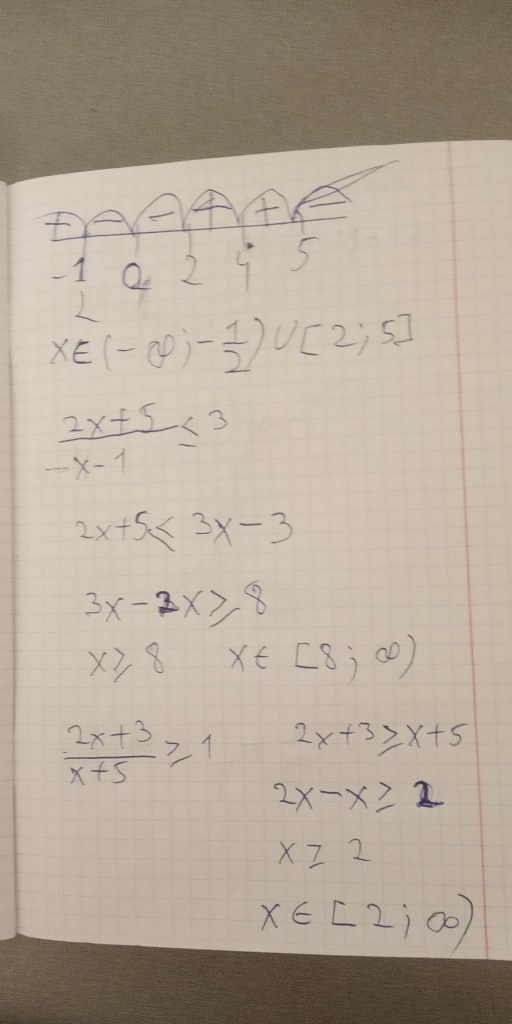 + - - + + -
-1 0 2 4 5
2
x∈(-∞;-1/2)∪[2;5]
2x+5/x-1 ≤ 3
2x+5≤ 3x-3
3x-2x≥8
x≥8 x∈ [8; ∞)
2x+3/x+5 ≥ 1 2x+3≥x+5
2x-x≥ 2
x≥ 2
x∈[2;∞)